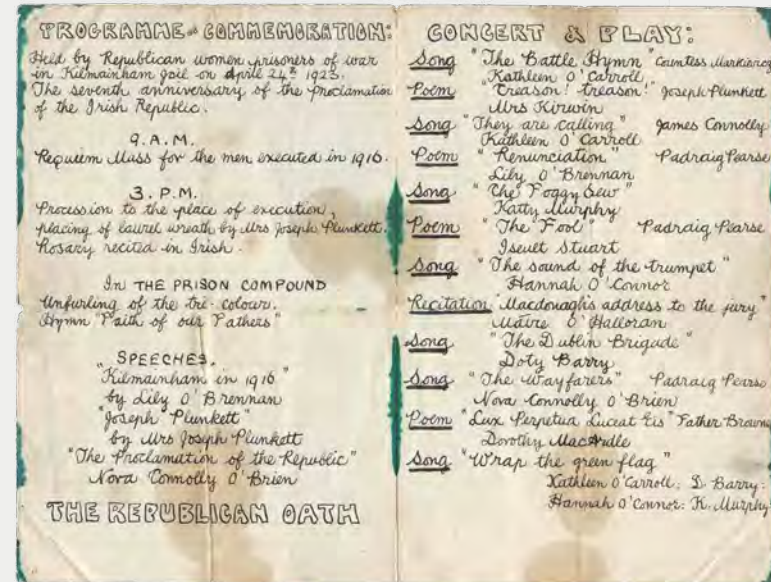 PROGRAMME OF COMMEMORATION:
Held by Republican women prisoners of war
in Kilmainham Jail on April 24th 1923.
The seventh anniversary of the proclamation
of the Irish Republic.
9. A.M.
Requiem Mass for the men executed in 1916.
3. P.M.
Procession to the place of execution,
placing of laurel wreath by Mrs Joseph Plunkett.
Rosary recited in Irish.
In THE PRISON COMPOUND
Unfurling of the tri-colour.
Hymn "Faith of our Fathers"
SPEECHES.
"Kilmainham in 1916"
by Lily O'Brennan
"Joseph Plunkett"
by Mrs Joseph Plunkett
"The Proclamation of the Republic"
Nova Connolly O'Brien
THE REPUBLICAN OATH
CONCERT & PLAY:
Song "The Battle Hymn" Countess Markievicz
Kathleen O'Carroll
Poem "Treason! treason!" Joseph Plunkett
Mrs Kirwin
Song "They are calling" James Connolly
Kathleen O'Carroll
Poem "Renunciation" Padraig Pearse
Lily O'Brennan
Song "The Foggy Dew"
Katty Murphy
Poem "The Fool" Padraig Pearse
Iseult Stuart
Song "The sound of the trumpet"
Hannah O'Connor
Recitation "Macdonagh's address to the jury"
Maire O'Halloran
Song "The Dublin Brigade"
Doty Barry
Song "The Wayfarers" Padraig Pearse
Nova Connolly O'Brien
Poem "Lux Perpetua Luceat Eis" Father Browne
Dorothy MacArdle
Song "Wrap the green flag"
Kathleen O'Carroll: D. Barry:
Hannah O'Connor: K. Murphy